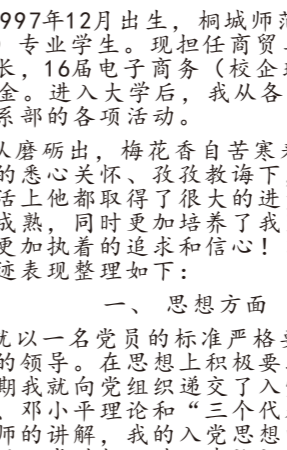 997年12月出生，桐城师范
）专业学生。现担任商贸
长，16届电子商务（校企
金。进入大学后，我从各
系部的各项活动。
从磨砺出，梅花香自苦寒来
的悉心关怀、孜孜教诲下，
活上他都取得了很大的进
成熟，同时更加培养了我
更加执着的追求和信心！
迹表现整理如下：
一、 思想方面
就以一名党员的标准严格要
的领导。在思想上积极要
期我就向党组织递交了入
、邓小平理论和“三个代
师的讲解，我的入党思想